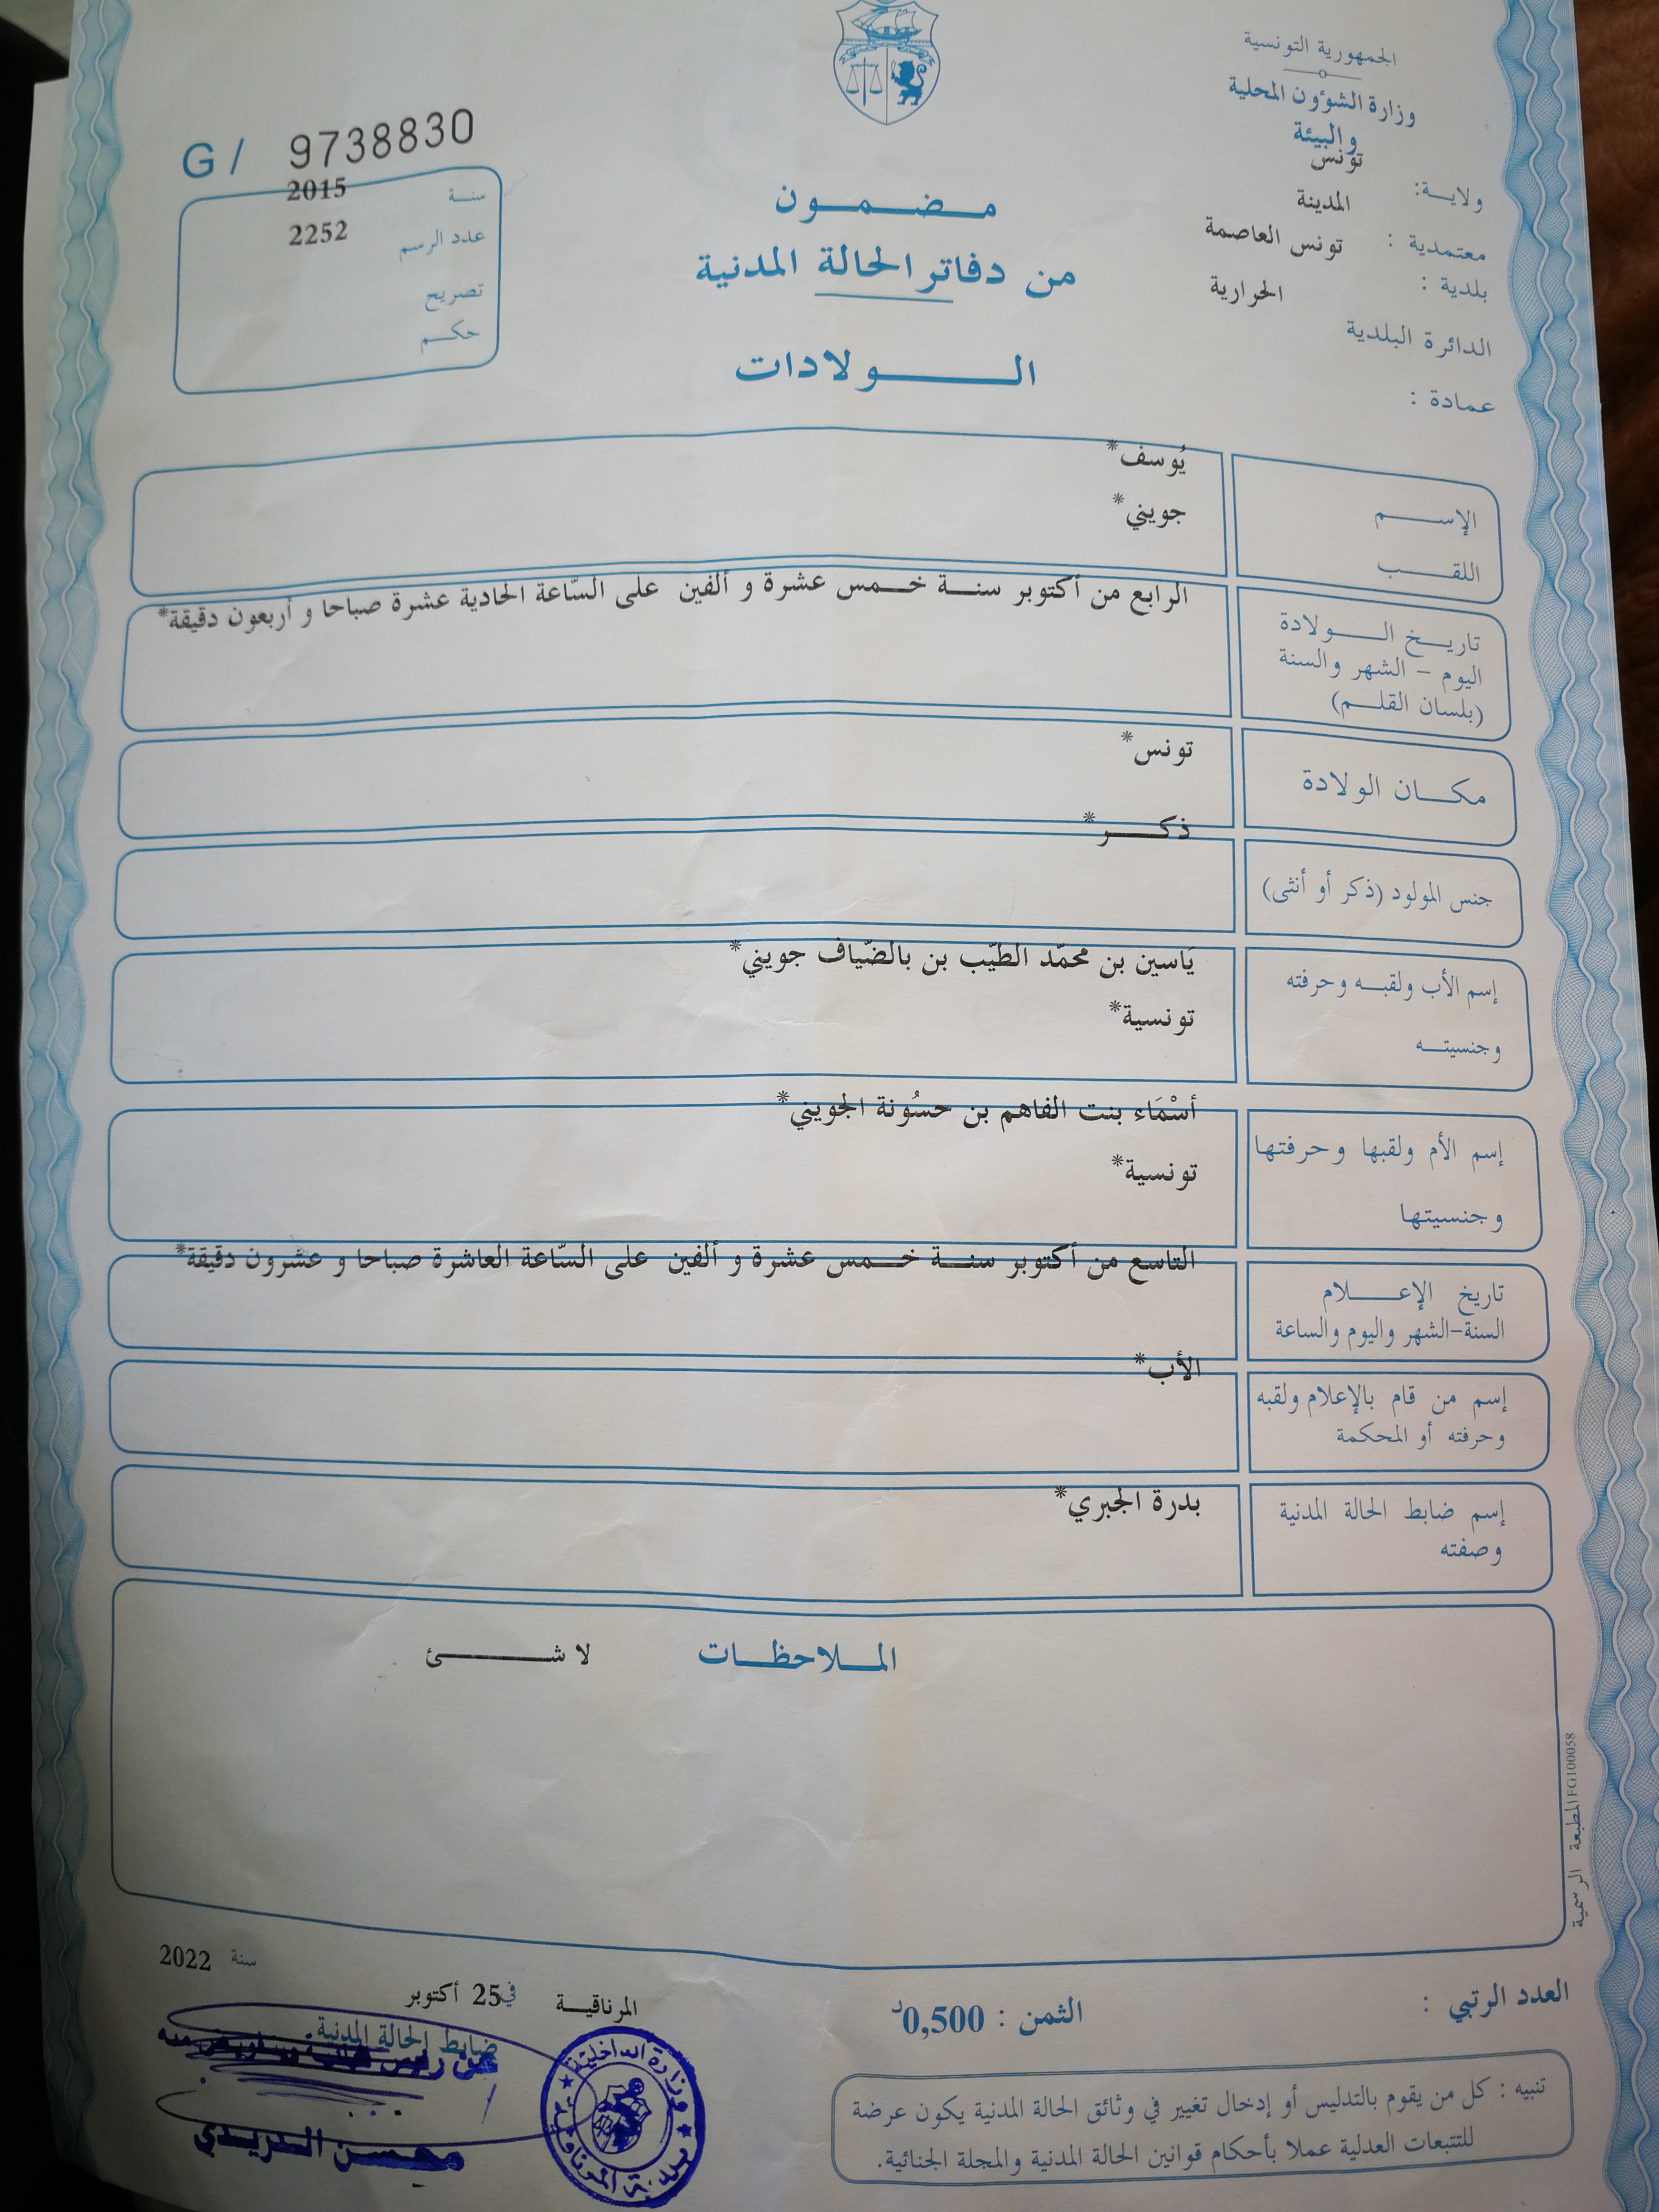 الجمهورية التونسية
وزارة الشؤون المحلية
والبيئة
ولاية: تونس
معتمدية : المدينة
بلدية : تونس العاصمة
الدائرة البلدية الحرارية
عمادة :
G / 9738830
سنة 2015
عدد الرسم 2252
تصريح
حكم
مضمون
من دفاتر الحالة المدنية
الولادات
الإسم يُوسف*
اللقب جويني*
تاريخ الولادة
اليوم - الشهر والسنة
(بلسان القلم)
الرابع من أكتوبر سنة خمس عشرة و ألفين على السّاعة الحادية عشرة صباحا و أربعون دقيقة*
مكان الولادة تونس*
جنس المولود (ذكر أو أنثى) ذكر*
إسم الأب ولقبه وحرفته
وجنسيته
يَاسين بن محمّد الطيّب بن بالضّياف جويني*
تونسية*
إسم الأم ولقبها وحرفتها
وجنسيتها
أسْمَاء بنت الفاهم بن حسُونة الجويني*
تونسية*
تاريخ الإعلام
السنة-الشهر واليوم والساعة
التاسع من أكتوبر سنة خمس عشرة و ألفين على السّاعة العاشرة صباحا و عشرون دقيقة*
إسم من قام بالإعلام ولقبه
وحرفته أو المحكمة
الأب*
إسم ضابط الحالة المدنية
وصفته
بدرة الجبري*
الملاحظات لا شئ
المطبعة الرسمية FG100058
العدد الرتبي :
الثمن : 0,500د
المرناقية في 25 أكتوبر سنة 2022
ضابط الحالة المدنية
محسن الدريدي
وزارة الداخلية
بلدية المرناقية
تنبيه : كل من يقوم بالتدليس أو إدخال تغيير في وثائق الحالة المدنية يكون عرضة
للتتبعات العدلية عملا بأحكام قوانين الحالة المدنية والمجلة الجنائية.